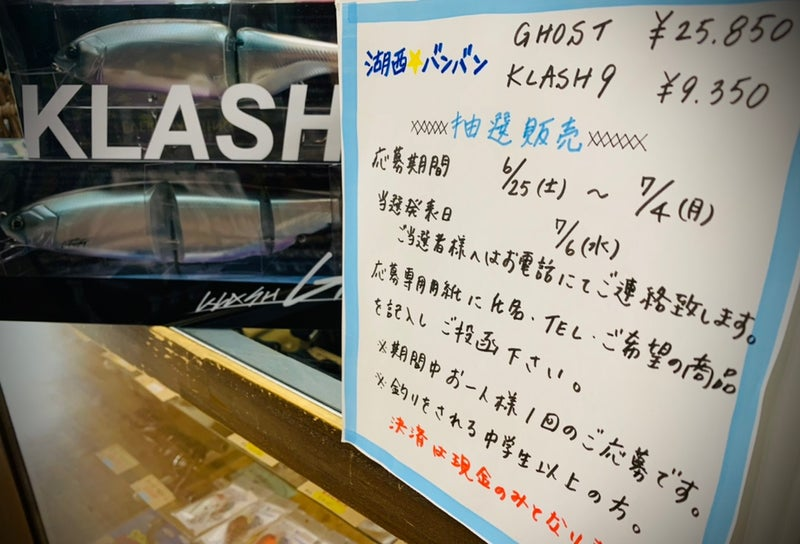 KLASH
KLASH
GHOST ¥25.850
湖西★バンバン
KLASH9 ¥9.350
××××× 抽選販売 ×××××
応募期間 6/25(土) ~ 7/4(月)
当選発表日 7/6(水)
ご当選者様へはお電話にてご連絡致します。
応募専用用紙に氏名、TEL・ご希望の商品
を記入しご投函下さい。
※期間中お一人様1回のご応募です。
※釣りをされる中学生以上の方。
決済は現金のみとなり